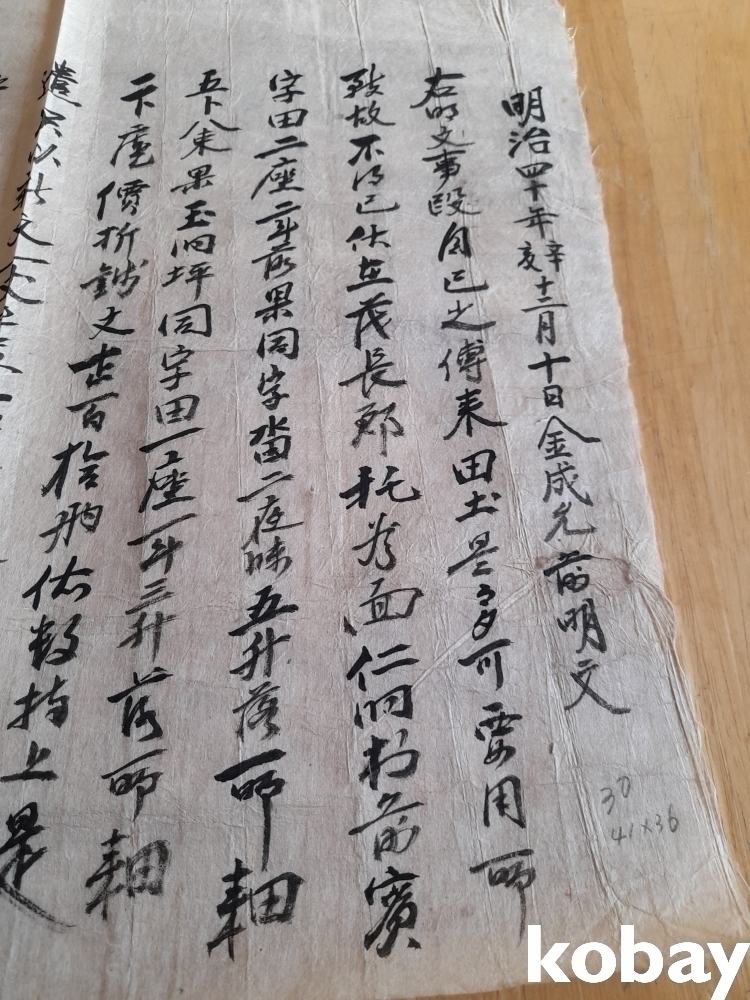 明治四十年辛亥十二月十日金成允前明文
右明文事段自己之傳来田土是多可要用所
致故不得已伏在茂長郡托谷面仁洞村前賓
字田二座二斗落果同字畓二夜味五升落所耕
五卜八束果玉洞坪同字田一座一斗三升落所耕
二卜庫價折錢文壱百拾両依数捧上是
遣只以新文一丈
30
41×36
kobay